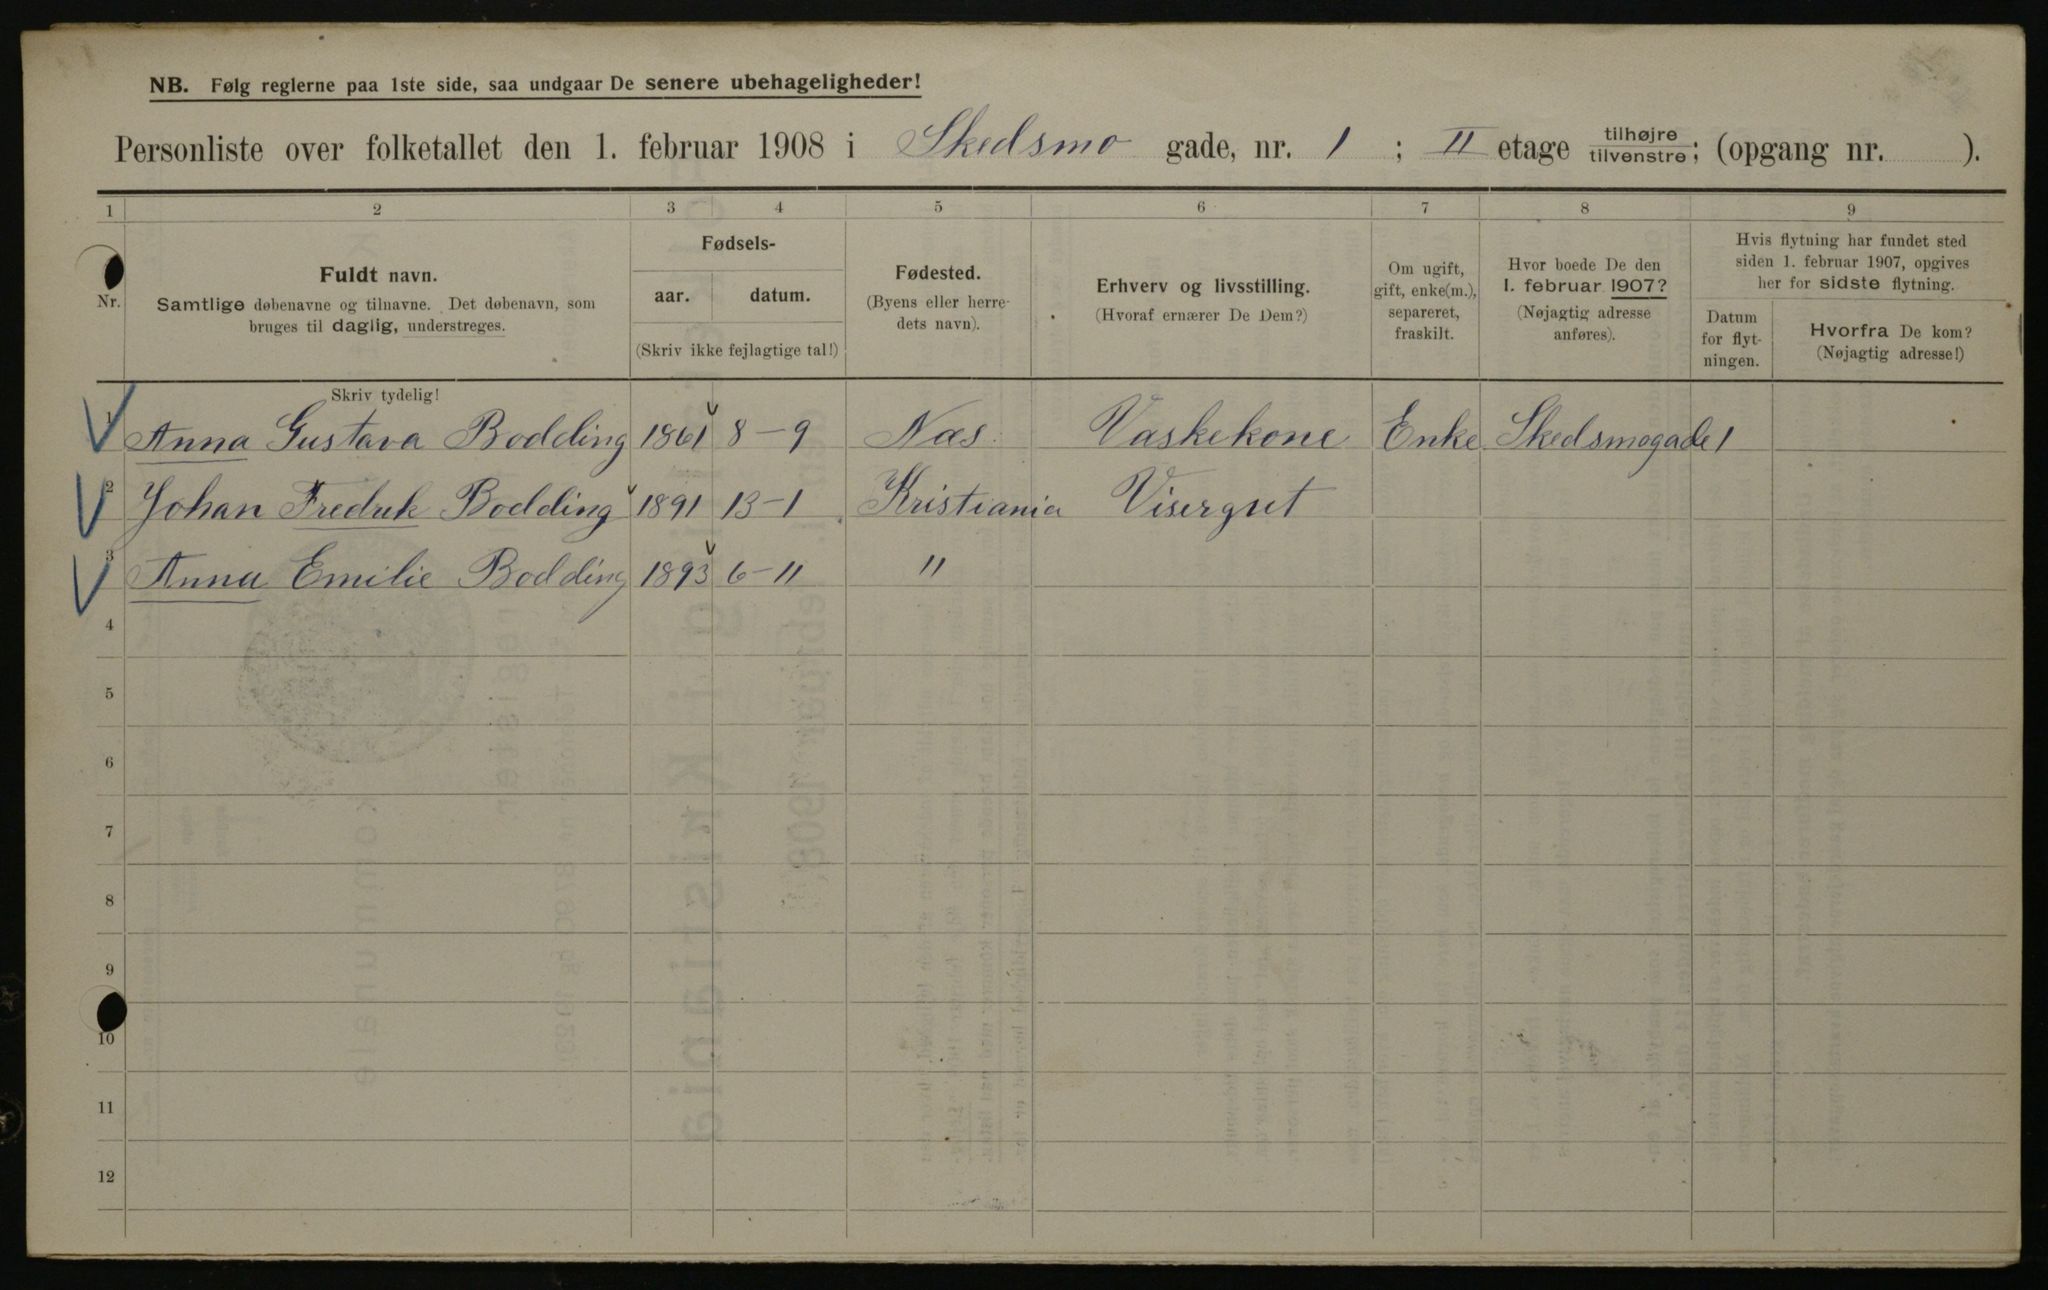 NB. Følg reglerne paa 1ste side, saa undgaar De senere ubehageligheder!
Personliste over folketallet den 1. februar 1908 i Skedsmo gade, nr. 1 ; II etage tilhøjre/tilvenstre; (opgang nr. ).
1 2 3 4 5 6 7 8 9
Nr.
Fuldt navn.
Samtlige døbenavne og tilnavne. Det døbenavn, som
bruges til daglig, understreges.
Skriv tydelig!
Fødsels-
aar. datum.
(Skriv ikke fejlagtige tal!)
Fødested.
(Byens eller herre-
dets navn).
Erhverv og livsstilling.
(Hvoraf ernærer De Dem?)
Om ugift,
gift, enke(m.),
separeret,
fraskilt.
Hvor boede De den
1. februar 1907?
(Nøjagtig adresse
anføres).
Hvis flytning har fundet sted
siden 1. februar 1907, opgives
her for sidste flytning.
Datum
for flyt-
ningen.
Hvorfra De kom?
(Nøjagtig adresse!)
1 Anna Gustava Bodding 1861 8-9 Næs Vaskekone Enke Skedsmogade 1
2 Johan Fredrik Bodding 1891 13-1 Kristiania Visergut
3 Anna Emilie Bodding 1893 6-11 "
4
5
6
7
8
9
10
11
12